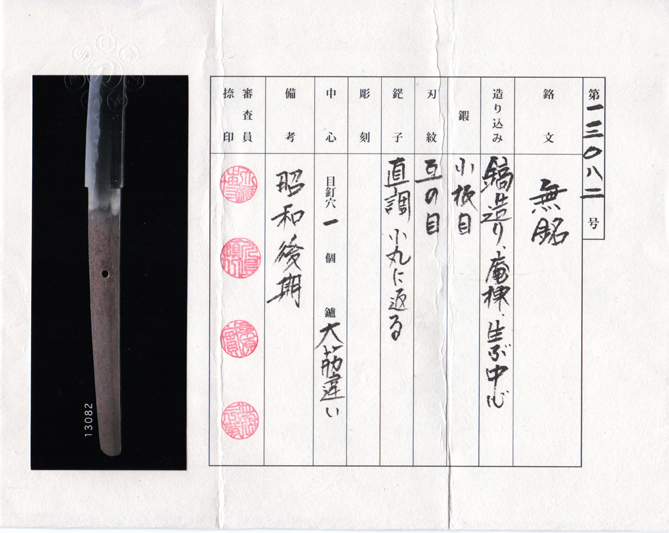 第一三〇八二号
銘文 無銘
造り込み 鎬造り、庵棟、生ぶ中心
鍛 小板目
刃紋 互の目
鋩子 直調 小丸に返る
彫刻
中心 目釘穴 一 個 鑢 大筋違い
備考 昭和後期
審査員捺印
13082